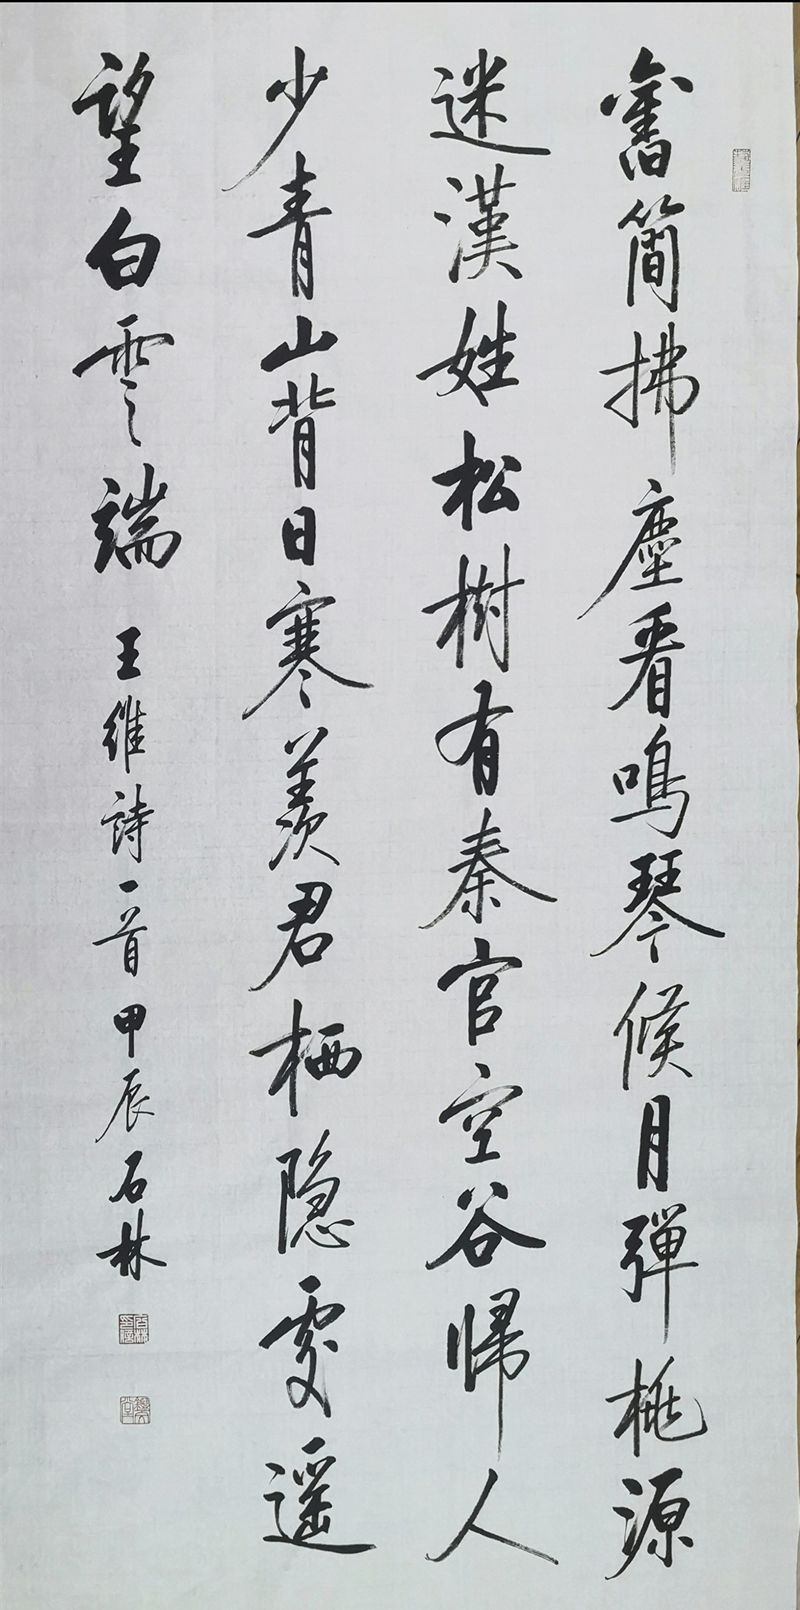 舊簡拂塵看鳴琴候月彈桃源
迷漢姓松樹有秦官空谷帰人
少青山背日寒羨君栖隐處遥
望白雲端 王維詩一首甲辰石林